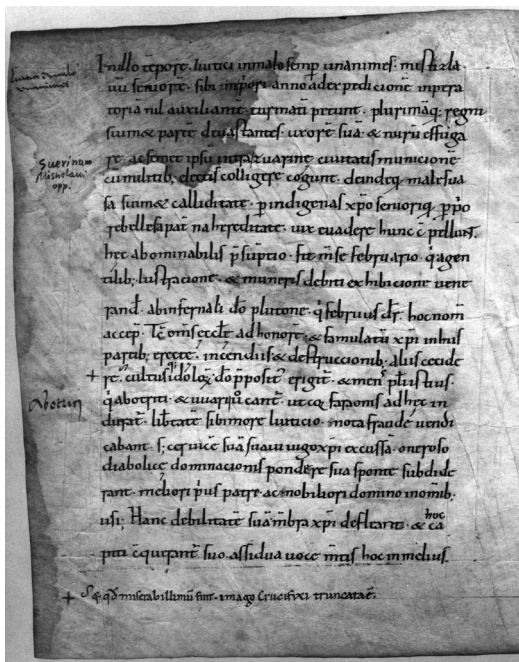 In illo tẽpore liutici in malo semꝑ unanimes mistizla
uũ seniorẽ sibi in p̃ori anno ad expedicionẽ inpera
toriã nil auxiliantẽ turmati petunt plurimãq; regni
suimet partẽ deuastantes uxorẽ suã & nurũ effuga
re ac semet ipsũ infra zuarine ciuitatis municionẽ
cũ militib; electis colligere cogunt. deindeq; malesua
sa suimet calliditate ꝑ indigenas xp̃o seniorīq; ꝓp̃o
rebelles a pat̃na hereditate uix euadere hunc c̃pellunt.
hec abominabilis p̃suptio fit m̃se februario q̃ a gen
tilib; lustracione & muneris debiti exhibicione uene
rand. ab infernali dõ plutone q̃ februus dr̃. hoc nom̃
accep̃. Tc̃ om̃s eccłe ad honorẽ & famulatũ xp̃i in his
partib; erecte incendiis & destruccionib; aliis cecide
re cultusq; idoloꝝ dõ p̃posit̃ erigit̃ & mens p̃łi istius
q̃ abotriti & uuari uocant̃ ut cor faraonis ad hec in
durat̃. lib̃tatẽ sibi more luticio nota fraude uendi
cabant. s; ceruicẽ suã suaui iugo xp̃i excussã oneroso
diabolice dominacionis pondere sua sponte subdide
rant. meliori p̃us patre ac nobiliori domino in om̃ib;
usi; Hanc debilitatẽ suã mb̃ra xp̃i defleant & hoc ca
piti c̃querant̃ suo. assidua uoce m̃tis hoc in melius
Suerinum
Mistislaui
opp.
Abotriti
+ & qd̃ miserabillimũ fuit. imago crucifixi truncata ẽ.